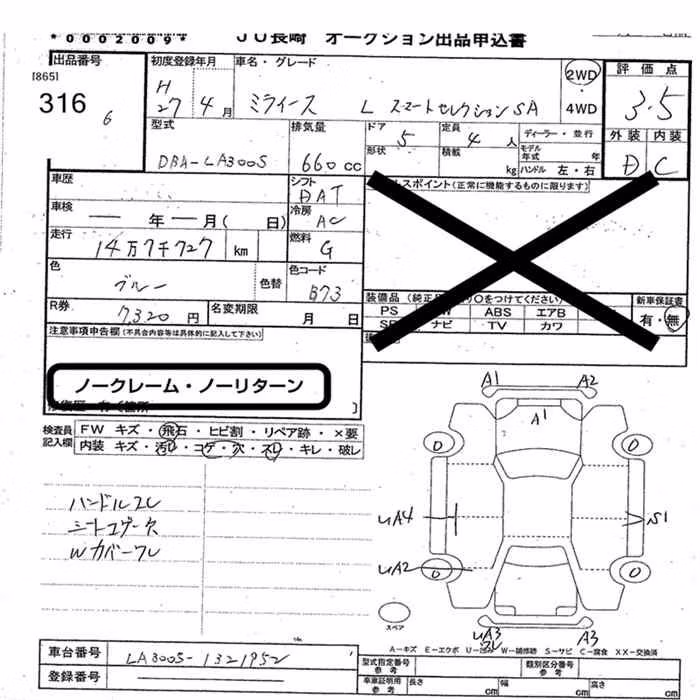 *0002009*
JU長崎 オークション出品申込書
出品番号
[865]
316
6
初度登録年月
H
27年 4月
車名・グレード
ミライース L スマートセレクションSA
2WD
4WD
評価点
3.5
外装 内装
D C
型式
DBA-LA300S
排気量
660cc
ドア
5
形状
定員
4人
積載
kg
ディーラー・並行
モデル年式 年
ハンドル 左・右
車歴
車検
― 年 ― 月( 日)
走行
14万7千727 km
色
ブルー
色替
シフト
DAT
冷房
AC
燃料
G
色コード
B73
スポイント(正常に機能するものに限ります)
R券
7,320円
名変期限
月 日
装備品(純正 ○をつけてください)
PS
W
ABS
エアB
SR
ナビ
TV
カワ
新車保証書
有・無
注意事項申告欄(不具合内容等は具体的に記入して下さい)
ノークレーム・ノーリターン
検査員記入欄
FW キズ・飛石・ヒビ割・リペア跡・×要
内装 キズ・汚レ・コゲ・穴・ネジ・キレ・破レ
ハンドルスレ
シートコゲ穴
Wカバーワレ
A1
A2
A1
0
0
UA4
S1
UA2
0
0
スペア
UA3
A3
A=キズ E=エクボ U=凹み W=補修跡 S=サビ C=腐食 XX=交換済
車台番号
LA300S-1321952
登録番号
型式指定番号
参考
類別区分番号
参考
車庫証明用
参考
長さ cm
幅 cm
高さ cm